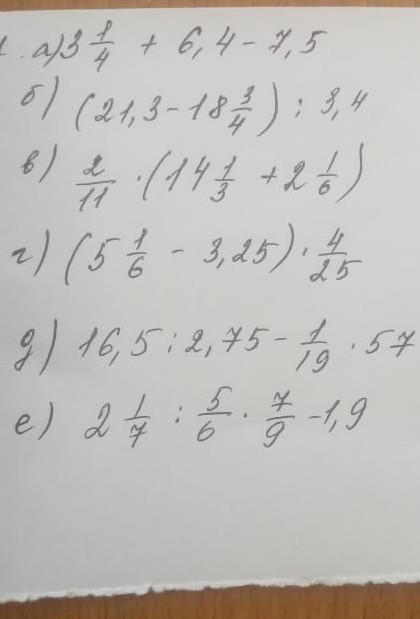 1. а) 3 1/4 + 6,4 - 7,5
б) (21,3 - 18 3/4) : 3,4
в) 2/11 · (14 1/3 + 2 1/6)
г) (5 1/6 - 3,25) · 4/25
д) 16,5 : 2,75 - 1/19 · 57
е) 2 1/7 : 5/6 · 7/9 - 1,9